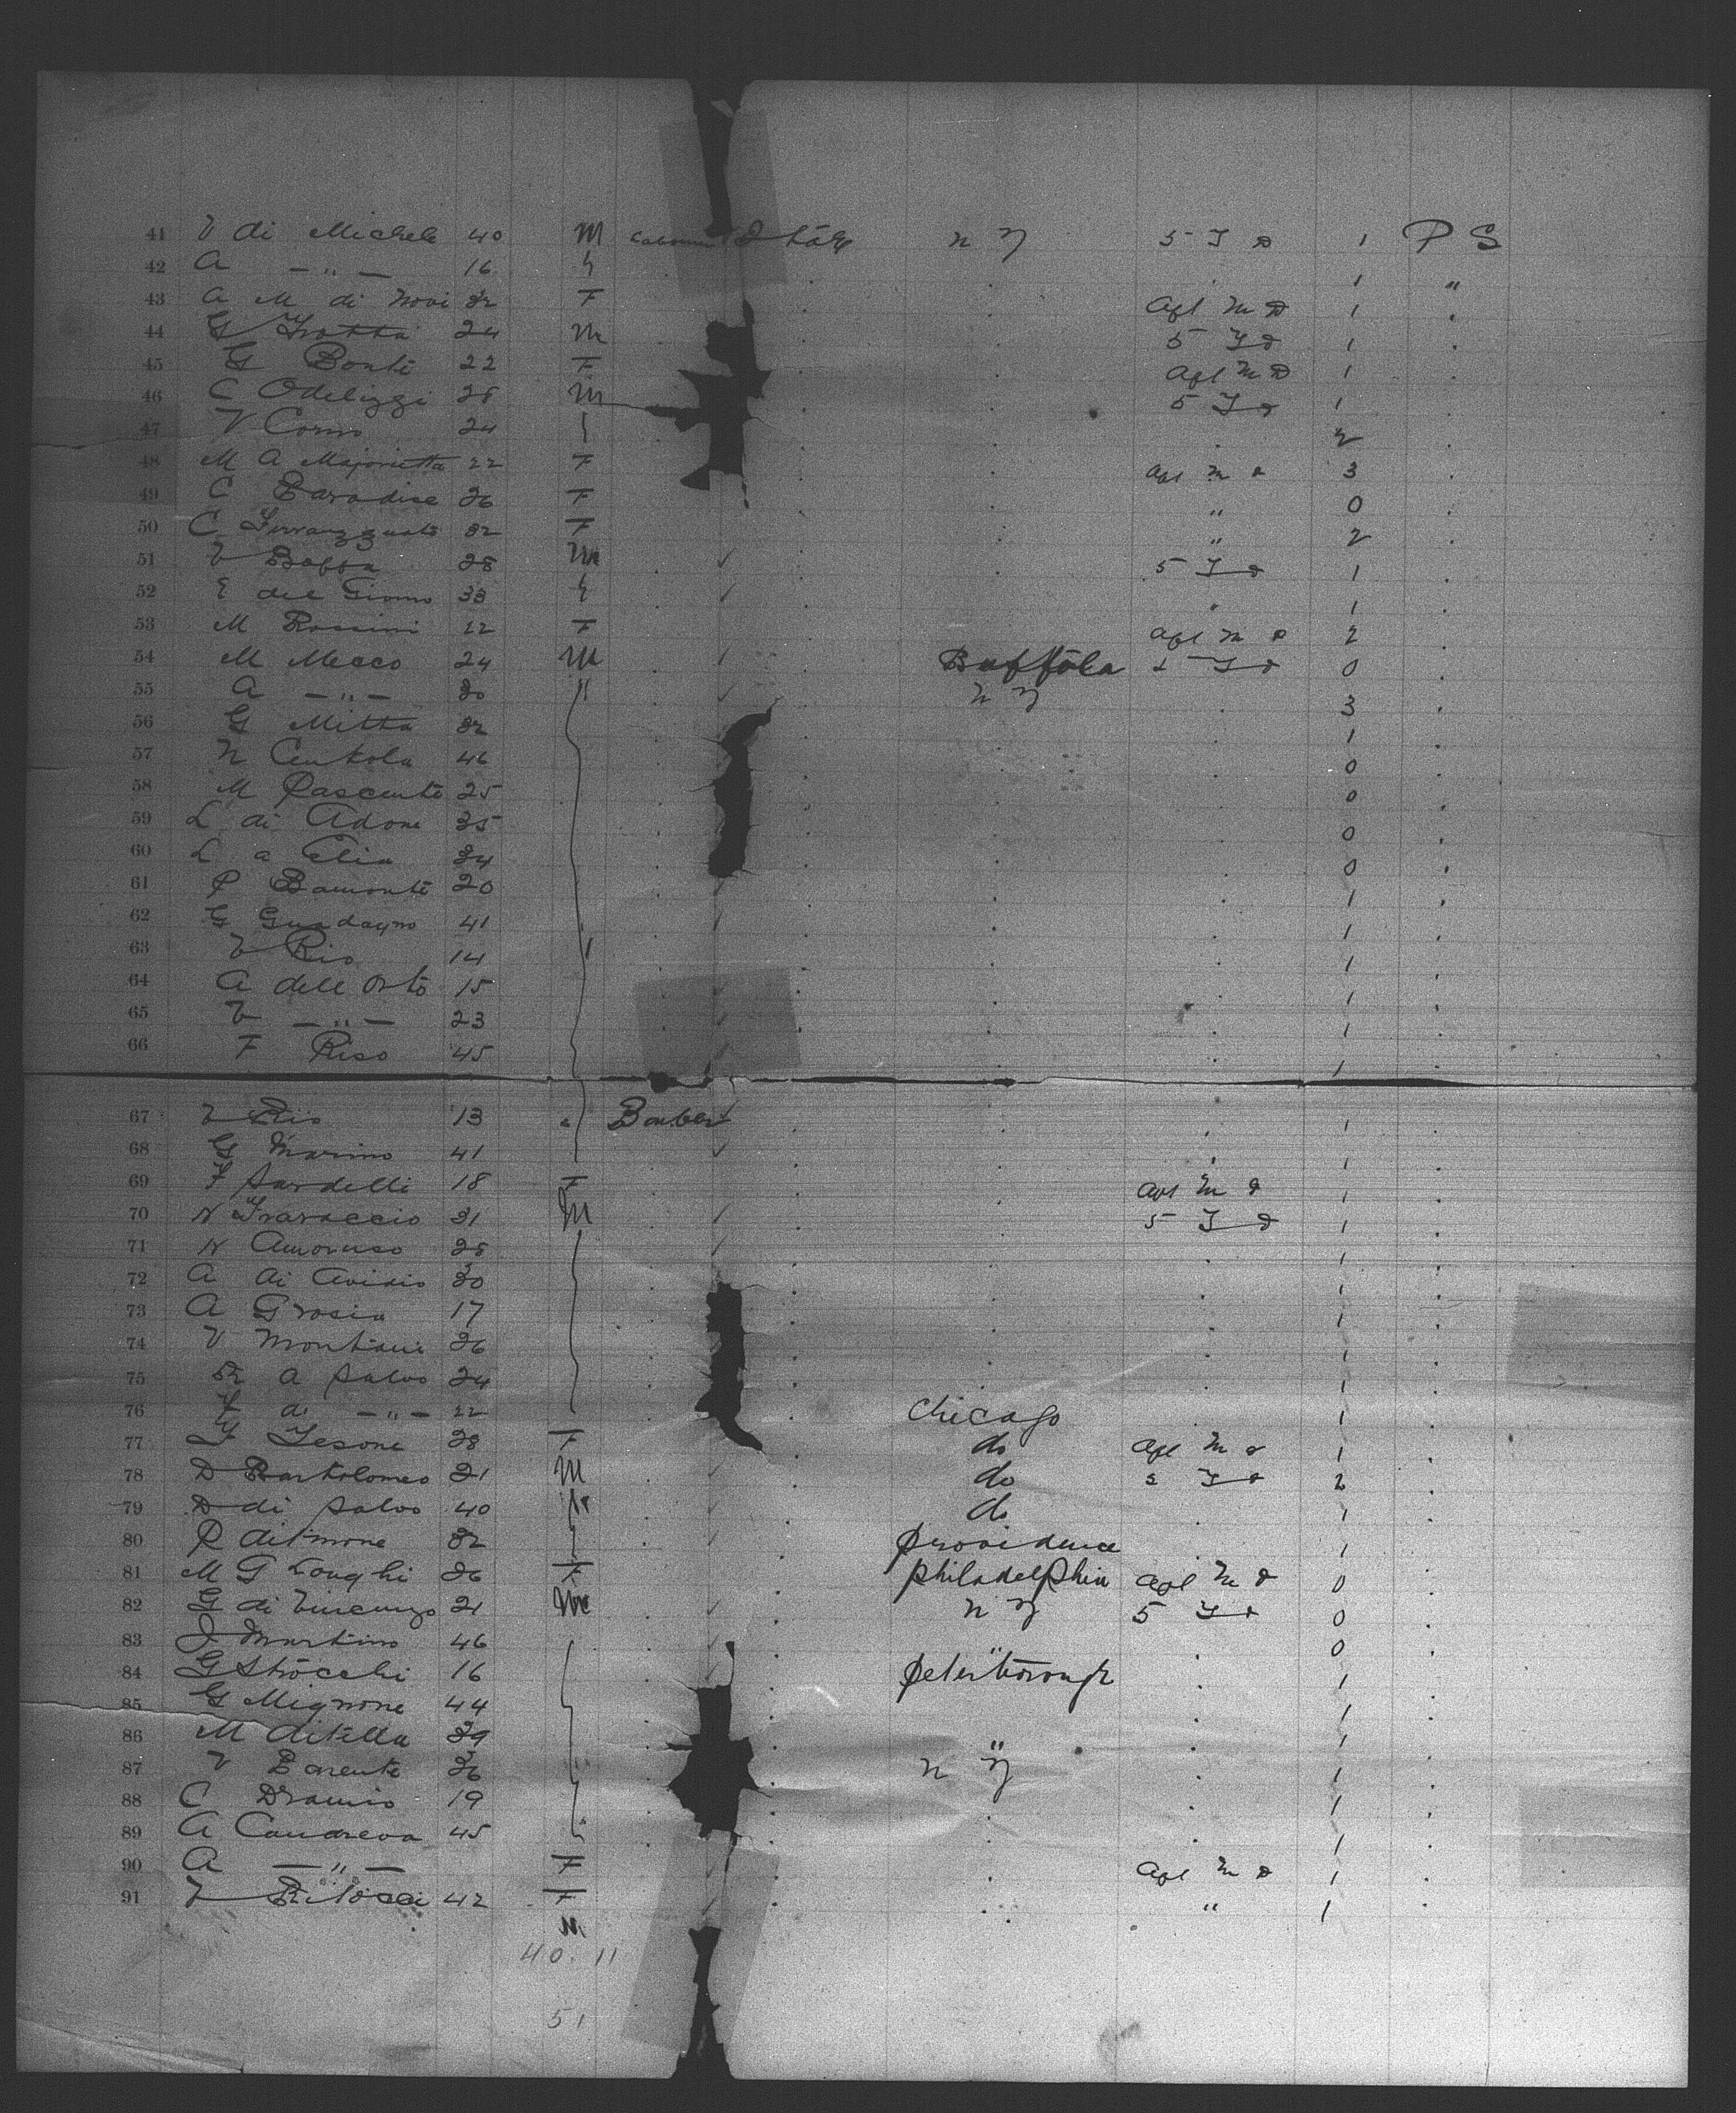 41 V di Michele 40 M Labourer Italy N Y 5 T D 1 P S
42 A — " — 16 . . 1 "
43 A M di Novi 32 F . . Apl M D 1 .
44 G Grotta 24 M . . 5 T D 1 .
45 G Bonti 22 F . . Apl M D 1 .
46 C Odelizzi 28 M . . 5 T D 1 .
47 V Corvo 24 . . . 2 .
48 M A Majorietta 22 F . . Apl M D 3 .
49 C Paradise 26 F . . " 0 .
50 C 32 F . . " 2 .
51 V Boffa 28 M . . . 5 T D 1 .
52 E del Giorno 33 . . . " 1 .
53 M Rossini 22 F . . Apl M D 2 .
54 M Mecco 24 M . . Buffola 5 T D 0 .
55 A — " — 30 " . . N Y . 3 .
56 G Mitta 32 . . . . 1 .
57 N 46 . . . . 0 .
58 M 25 . . . . 0 .
59 L di Adone 35 . . . . 0 .
60 L a Elia 34 . . . . 0 .
61 P Bamonte 20 . . . . 1 .
62 G Guadagno 41 . . . . 1 .
63 V Rio 14 . . . . 1 .
64 A dell Orto 15 . . . . 1 .
65 V — " — 23 . . . . 1 .
66 F Riso 45 . . . . 1 .
67 V Rio 13 " Barber . . . 1 .
68 G Marino 41 . . . . 1 .
69 F Sardelli 18 F . . . Apl M D 1 .
70 N 31 M . . . 5 T D 1 .
71 N Amoruso 28 . . . . 1 .
72 A di Avidio 30 . . . . 1 .
73 A Grosia 17 . . . . 1 .
74 V Montani 26 . . . . 1 .
75 R A Salvo 24 . . . . 1 .
76 F di — " — 22 . . Chicago . 1 .
77 F Iesone 28 F . . do Apl M D 1 .
78 D Bartolomeo 21 M . . do 5 T D 2 .
79 D di Salvo 40 . . do . 1 .
80 P 32 . . Providence . 1 .
81 M G Longhi 26 F . . Philadelphia Apl M D 0 .
82 G di Vincenzo 21 M . . N Y 5 T D 0 .
83 J Martino 46 . . " . 0 .
84 G Strocchi 16 . . Peterborough . 1 .
85 G Mignone 44 . . . 1 .
86 M Ditella 39 . . " . 1 .
87 V Parente 36 . . N Y . 1 .
88 C 19 . . . . 1 .
89 A Candreva 45 . . . . 1 .
90 A — " — F . . . Apl M D 1 .
91 V 42 F . . . " 1
M
40. 11
51